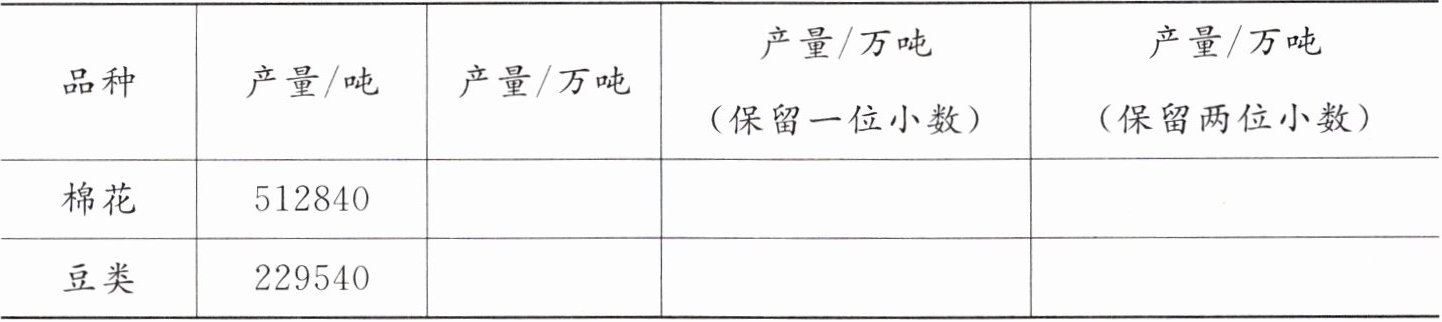 品种 产量/吨 产量/万吨 产量/万吨 (保留一位小数) 产量/万吨 (保留两位小数)
棉花 512840
豆类 229540